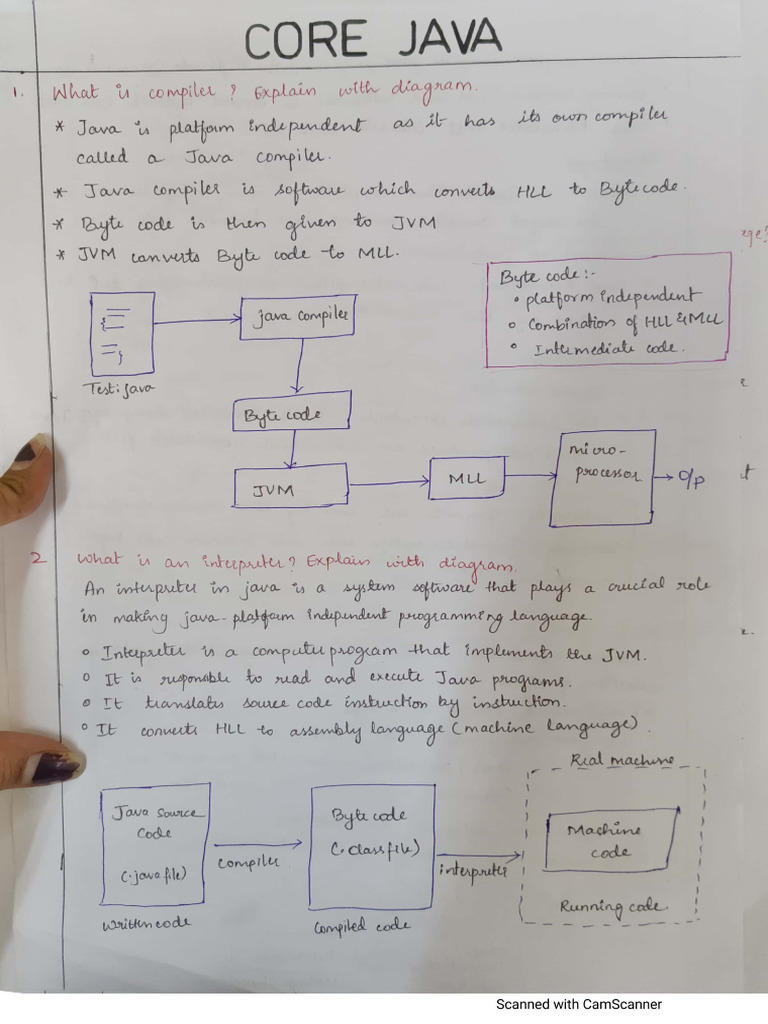 CORE JAVA
1. What is compiler? Explain with diagram.
* Java is platform independent as it has its own compiler
called a Java compiler.
* Java compiler is software which converts HLL to Bytecode.
* Byte code is then given to JVM
* JVM converts Byte code to MLL.
Byte code:-
• platform independent
• Combination of HLL & MLL
• Intermediate code.
java compiler
Test.java
Byte code
JVM
MLL
micro-
processor
O/p
2 What is an interpreter? Explain with diagram.
An interpreter in java is a system software that plays a crucial role
in making java-platform independent programming language.
• Interpreter is a computer program that implements the JVM.
• It is responsible to read and execute Java programs.
• It translates source code instruction by instruction.
• It converts HLL to assembly language (machine language).
Java source
code
(.java file)
Written code
compiler
Byte code
(.class file)
Compiled code
interpreter
Real machine
Machine
code
Running code.
Scanned with CamScanner